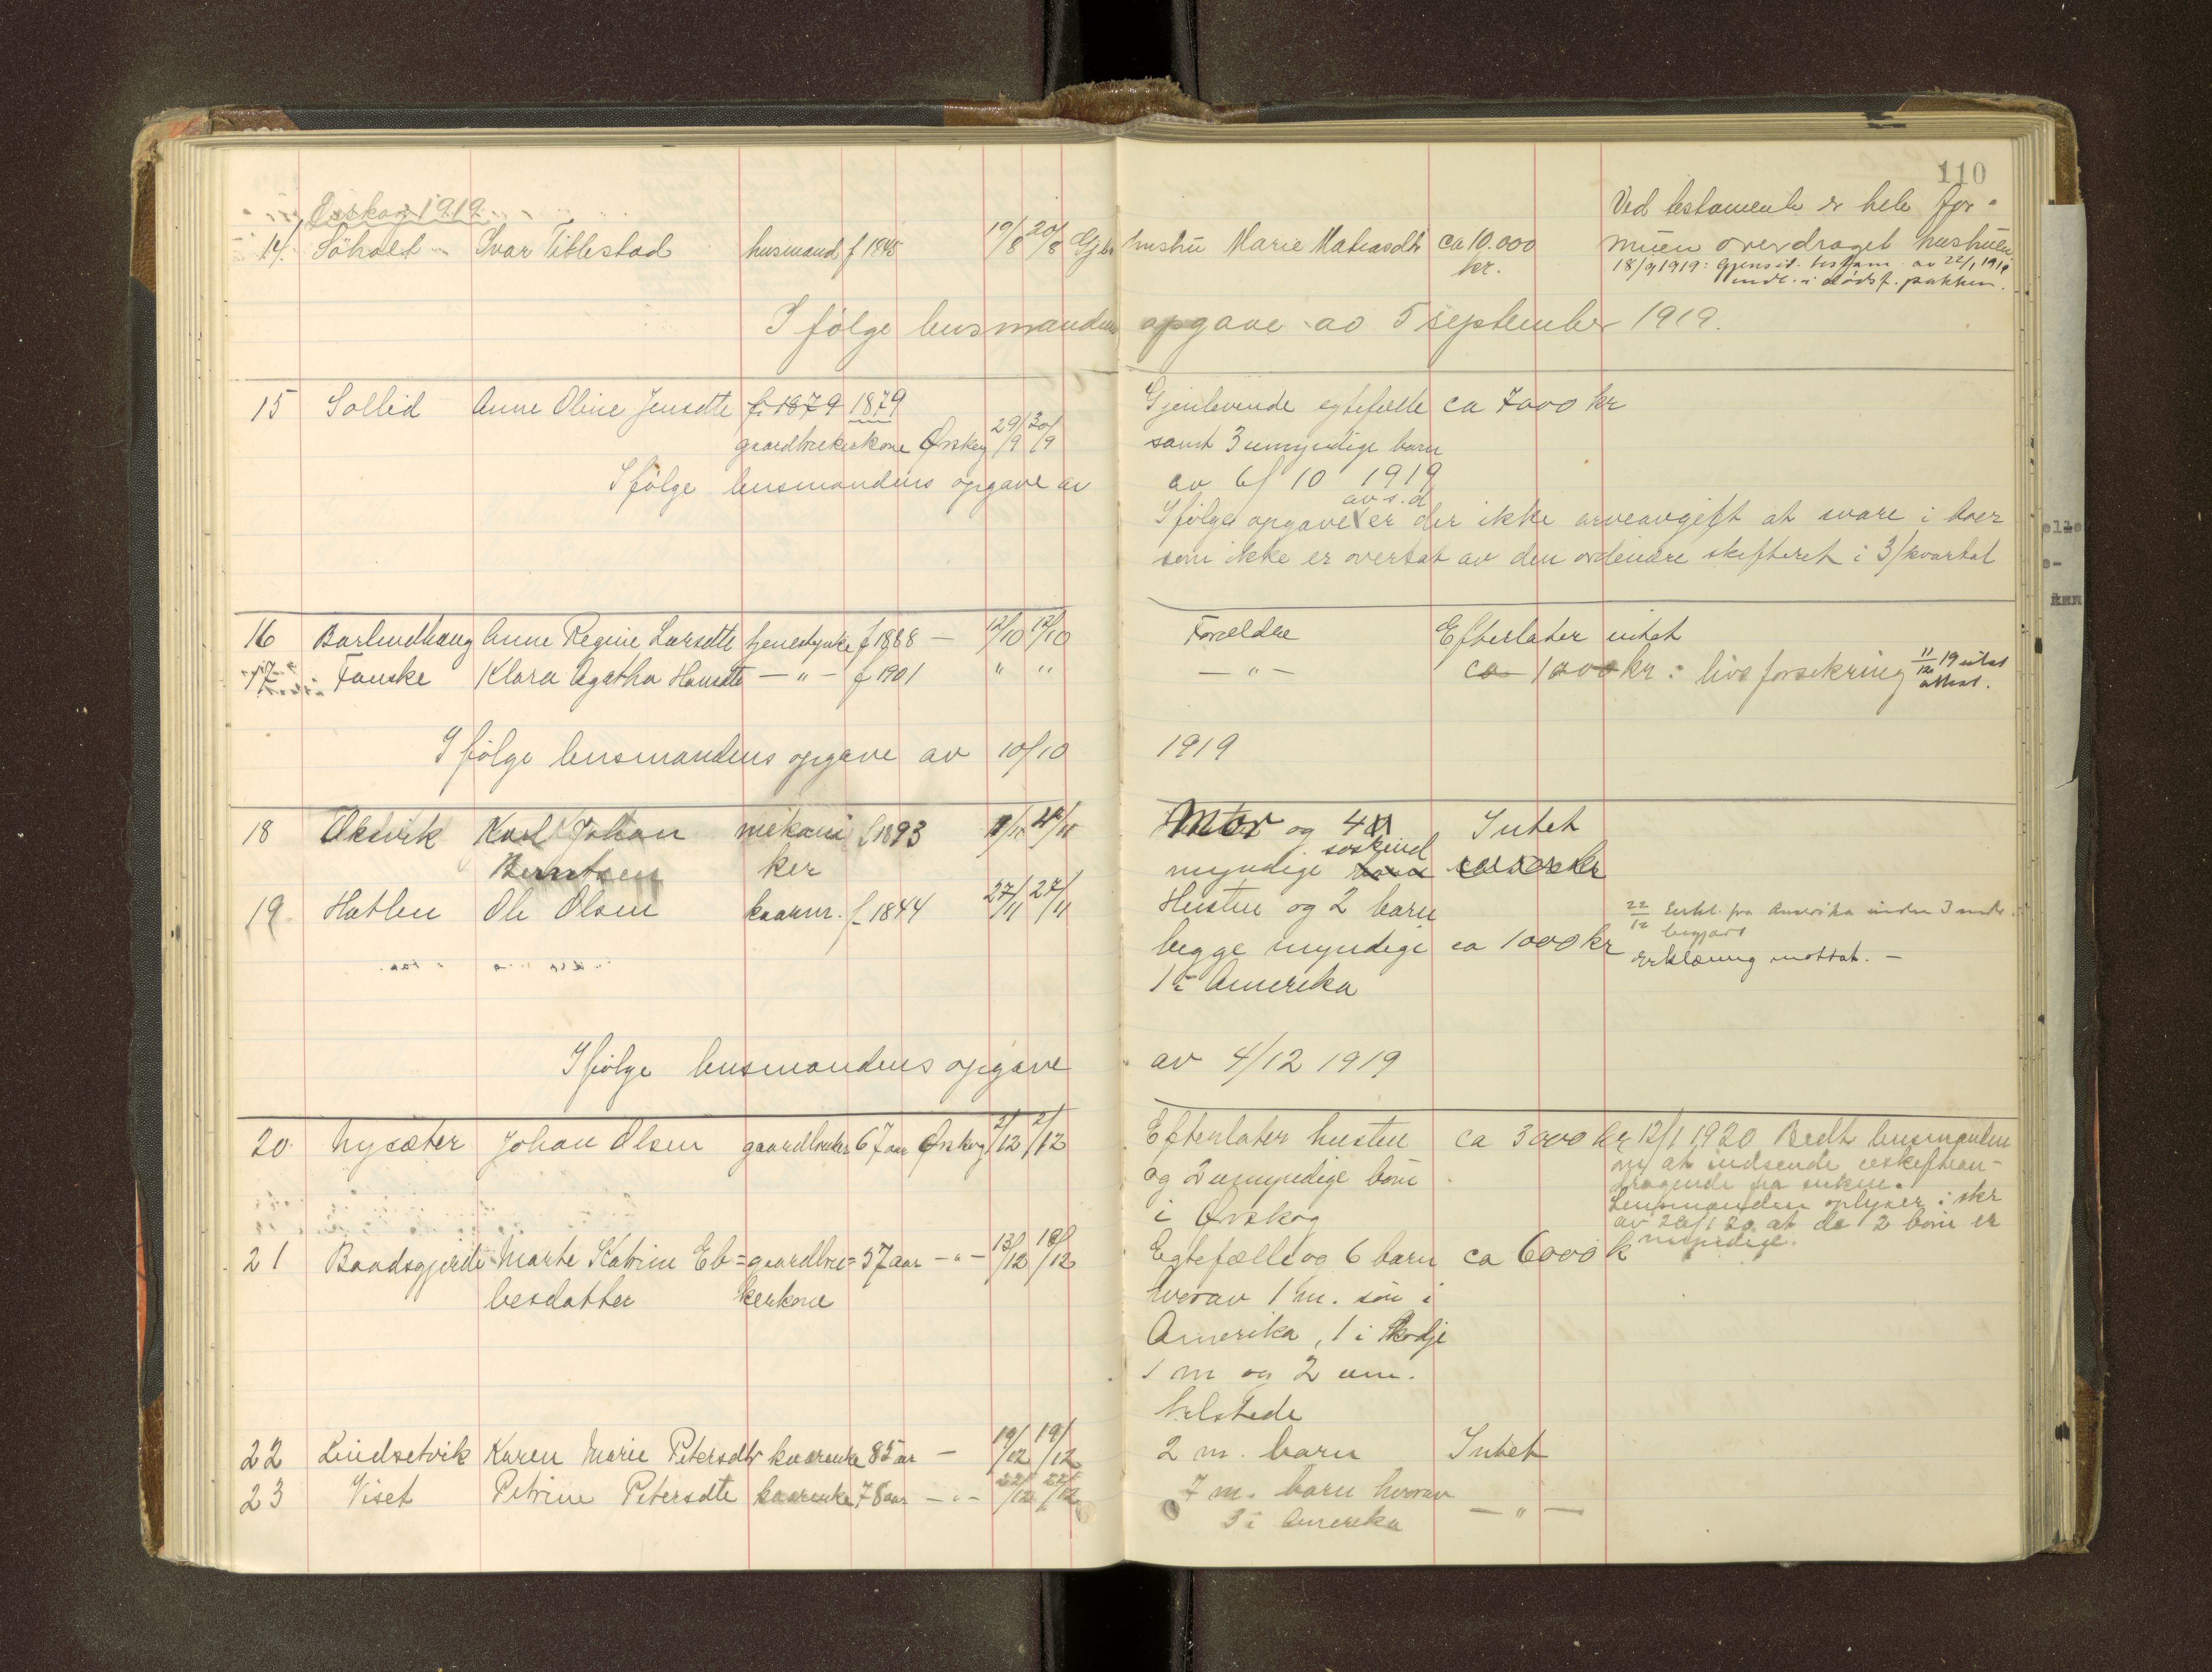 110
Ørskog 1919
14. Söholt Ivar Tittestad husmand f 1845 19/8 20/8 Gj.l. hustru Marie Matiasdtr ca 10.000 kr.
Ved testamente er hele for-
muen overdraget hustruen
18/9 1919: Gjensid. testam. av 22/1 1919
indl. i dödsf. pakken.
I fölge lensmandens opgave av 5 september 1919.
15 Sollid Anne Oline Jensdtr f. 1879 1879 Gjenlevende egtefælle ca 7000 kr
gaardbrukerkone Ørskog 29/9 30/9 samt 3 umyndige barn
I fölge lensmandens opgave av av 6/10 1919
av s.d.
I fölge opgave er der ikke arveavgift at svare i boer
som ikke er overtat av den ordinære skifteret i 3/kvartal
16 Barlindhaug Anne Regine Larsdtr tjenestpike f 1868 — 12/10 12/10 Forældre Efterlater intet
17 Fauske Klara Agatha Hansdtr — " — f 1901 " " — " — ca 1000 kr: livsforsikring 11/12 19 utst attest.
I fölge lensmandens opgave av 10/10 1919
18 Aksvik Karl Johan mekani f 1893 Mor og 4 Intet
Berntsen ker myndige söskend barn
19 Hatlen Ole Olsen kaarm. f. 1844 27/11 27/11 Hustru og 2 barn
begge myndige ca 1000 kr
1 i Amerika
22/12 Erkl. fra Amerika inden 3 mdr.
begjært
Erklæring mottat. —
I fölge lensmandens opgave av 4/12 1919
20 Nysæter Johan Olsen gaardbruker 67 aar Ørskog 2/12 2/12 Efterlater hustru ca 3000 kr 12/1 1920 Bedt lensmanden
og 2 umyndige börn
i Ørskog
om at indsende uskiftean-
dragende fra enken.
Lensmanden oplyser i skr
av 20/1 20 at de 2 börn er
myndige.
21 Baadsgjerde Marte Katrine Eb= gaardbru= 57 aar — " — 13/12 18/12 Egtefælle og 6 barn ca 6000 k
besdatter kerkone hvorav 1 m. sön i
Amerika, 1 i Skodje
1 m og 2 um.
helstede
22 Lindsetvik Karen Marie Petersdtr kaarenke 85 aar — 19/12 19/12 2 m. barn Intet
23 Viset Petrine Petersdtr kaarenke 78 aar — " — 22/12 22/12 7 m. barn hvorav
3 i Amerika — " —
elle